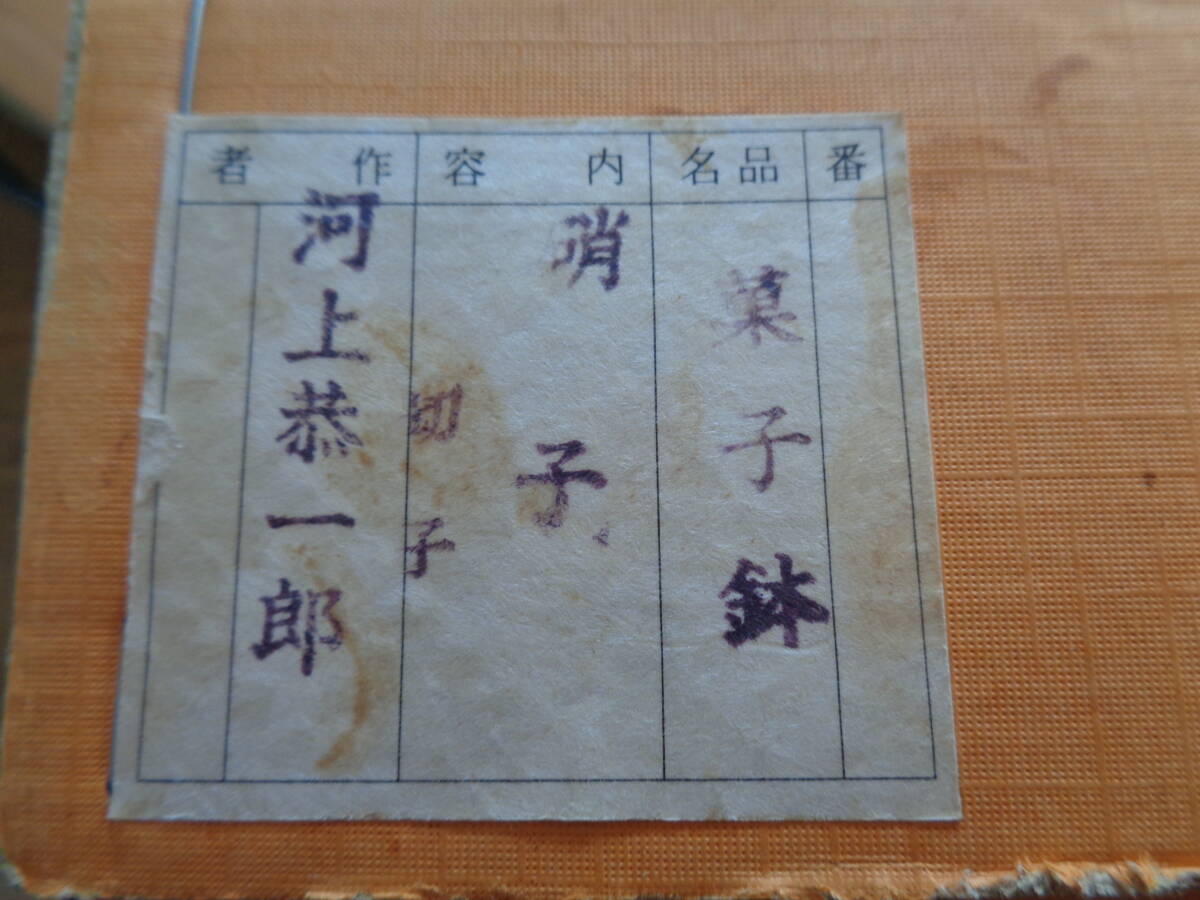 番
品名
菓子鉢
内容
硝子
切子
作者
河上恭一郎